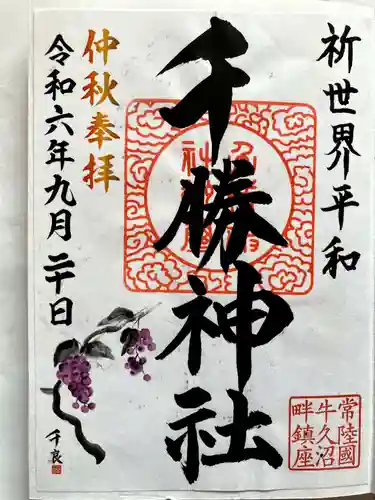 祈世界平和
千勝神社
仲秋奉拝
令和六年九月二十日
常陸國
牛久沼
畔鎮座
千良